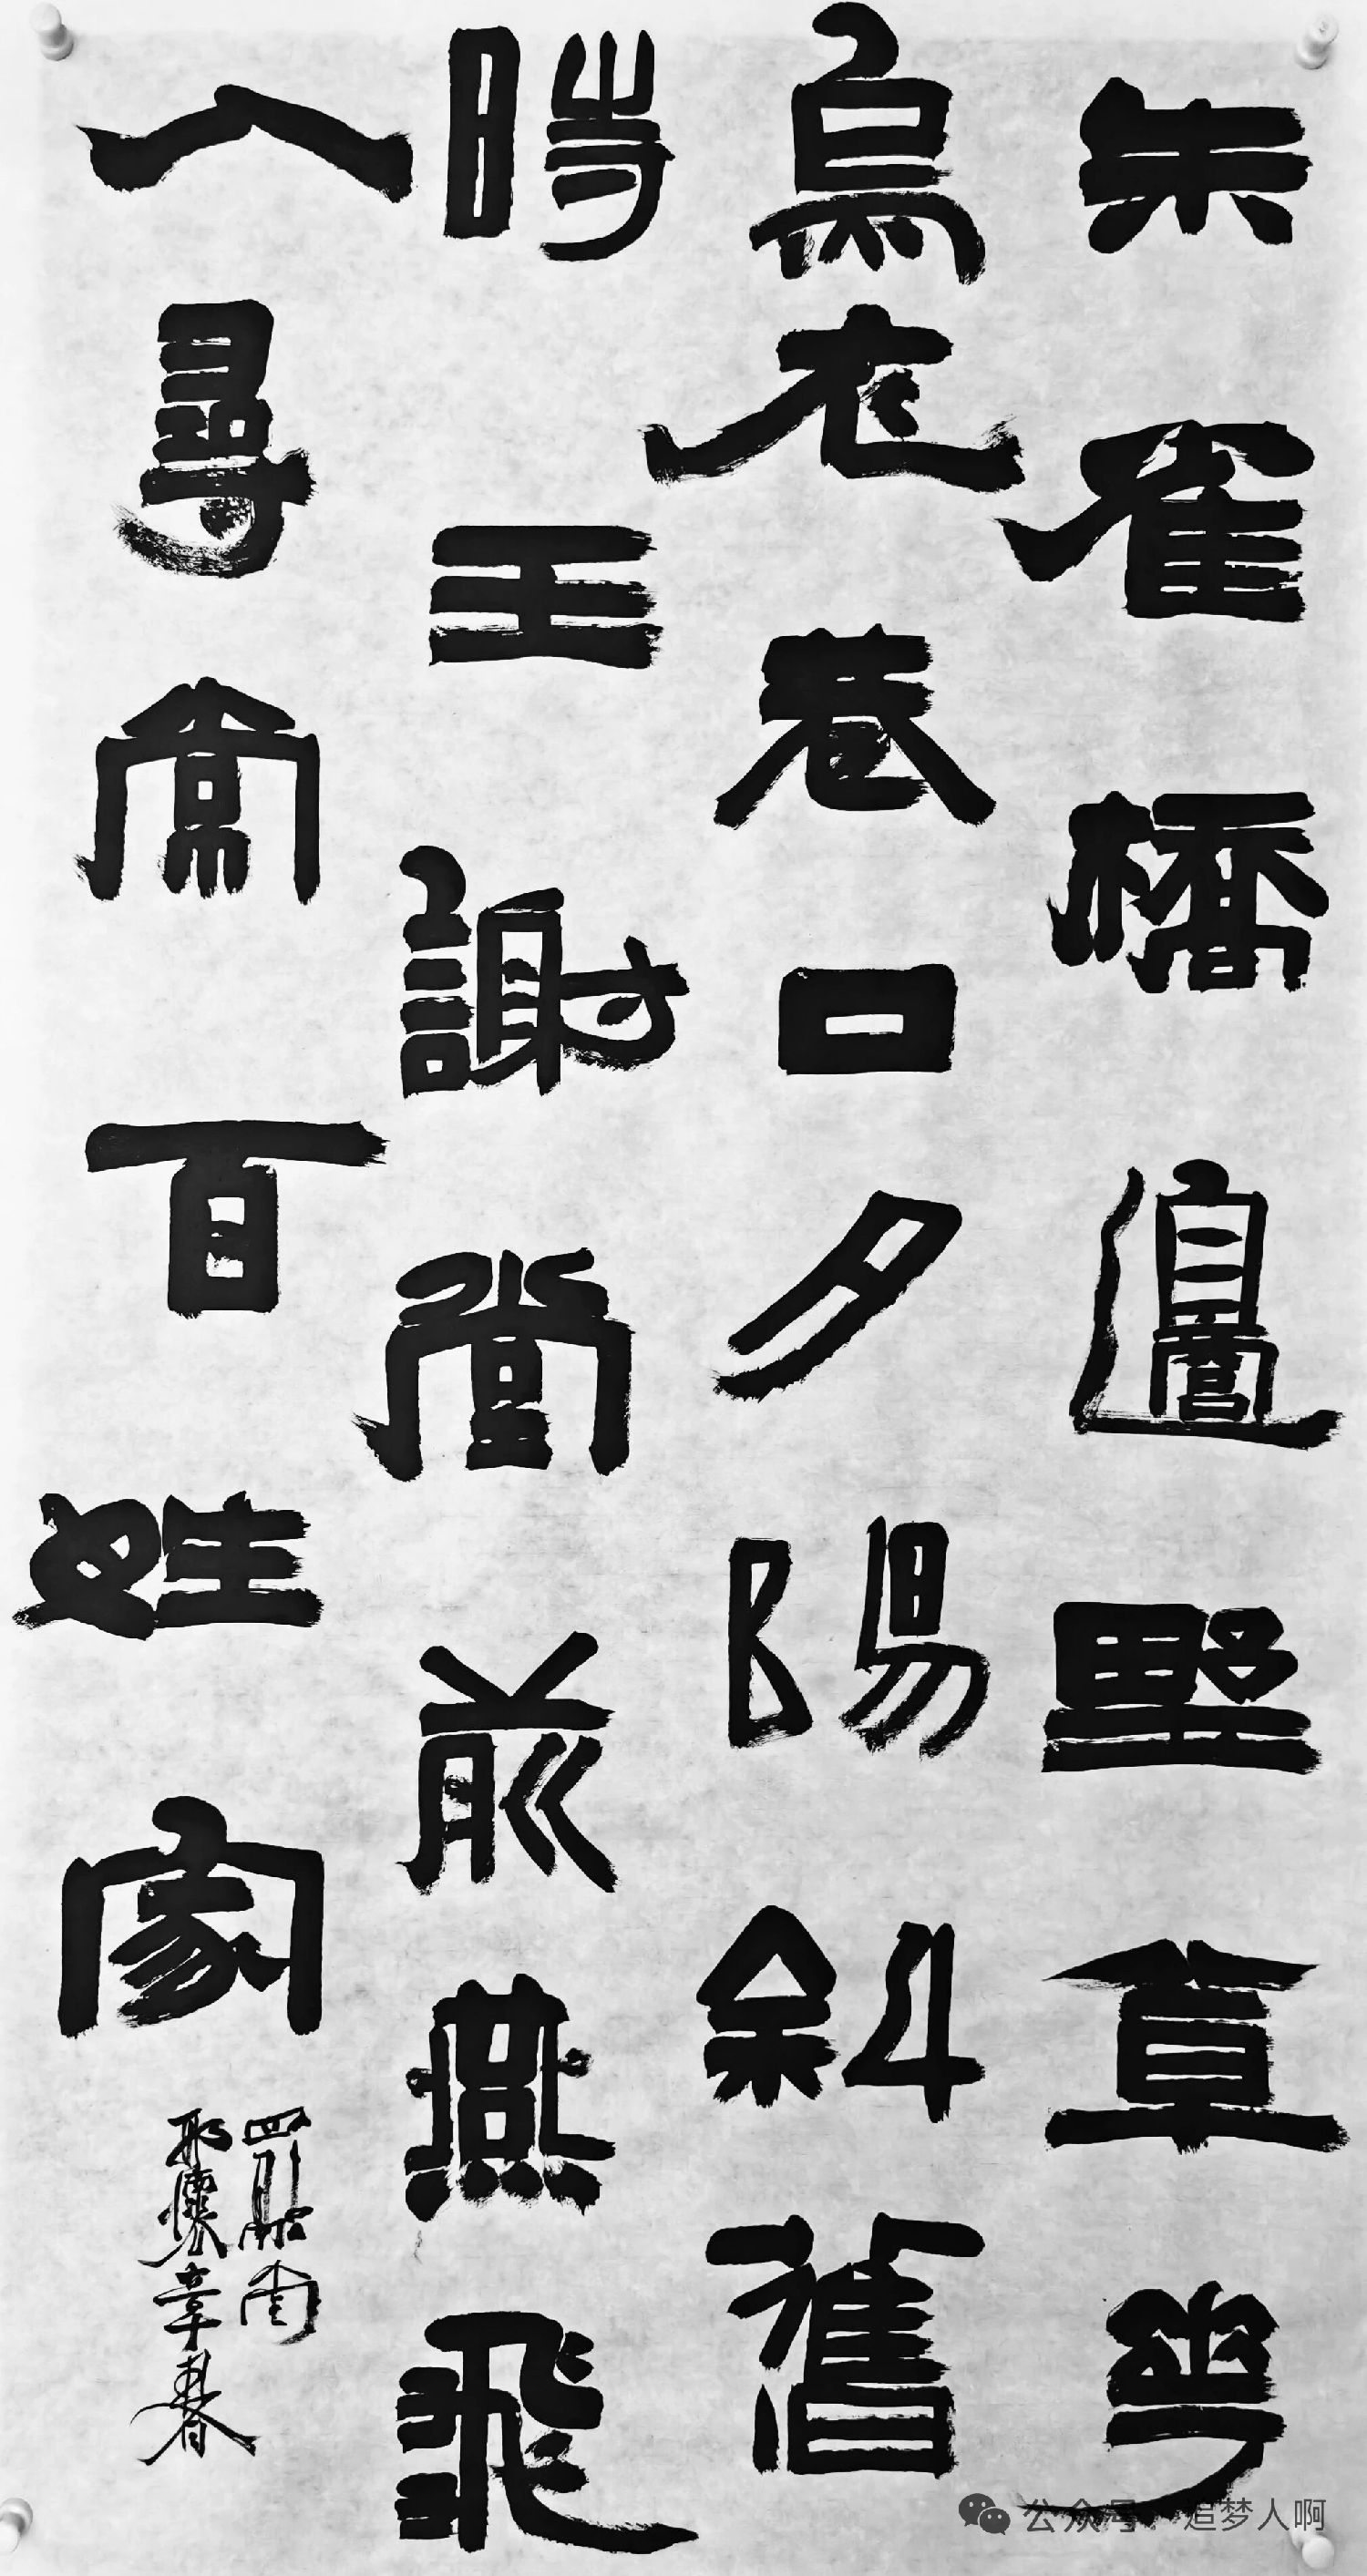 朱雀橋邊墅草華
烏衣巷口夕陽斜舊
時王謝堂前燕飛
入尋常百姓家
公众号·追梦人啊